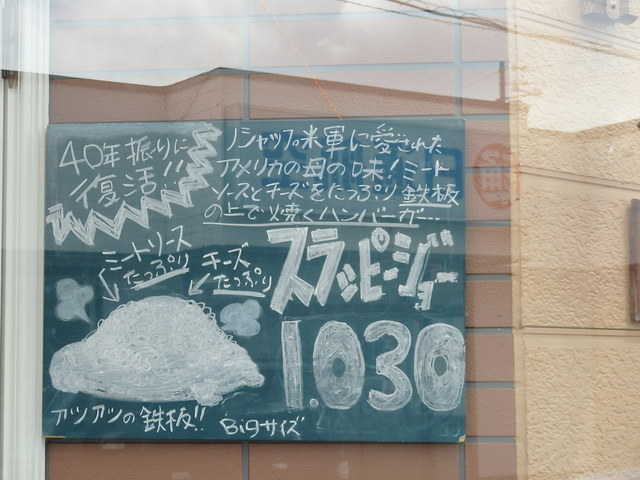 40年振りに
復活!!
ノシャップ米軍に愛された
アメリカの母の味!ミート
ソースとチーズをたっぷり鉄板
の上で焼くハンバーガー…
スラッピージョー
ミートソース
たっぷり
チーズ
たっぷり
1.030
アツアツの鉄板!!
Bigサイズ